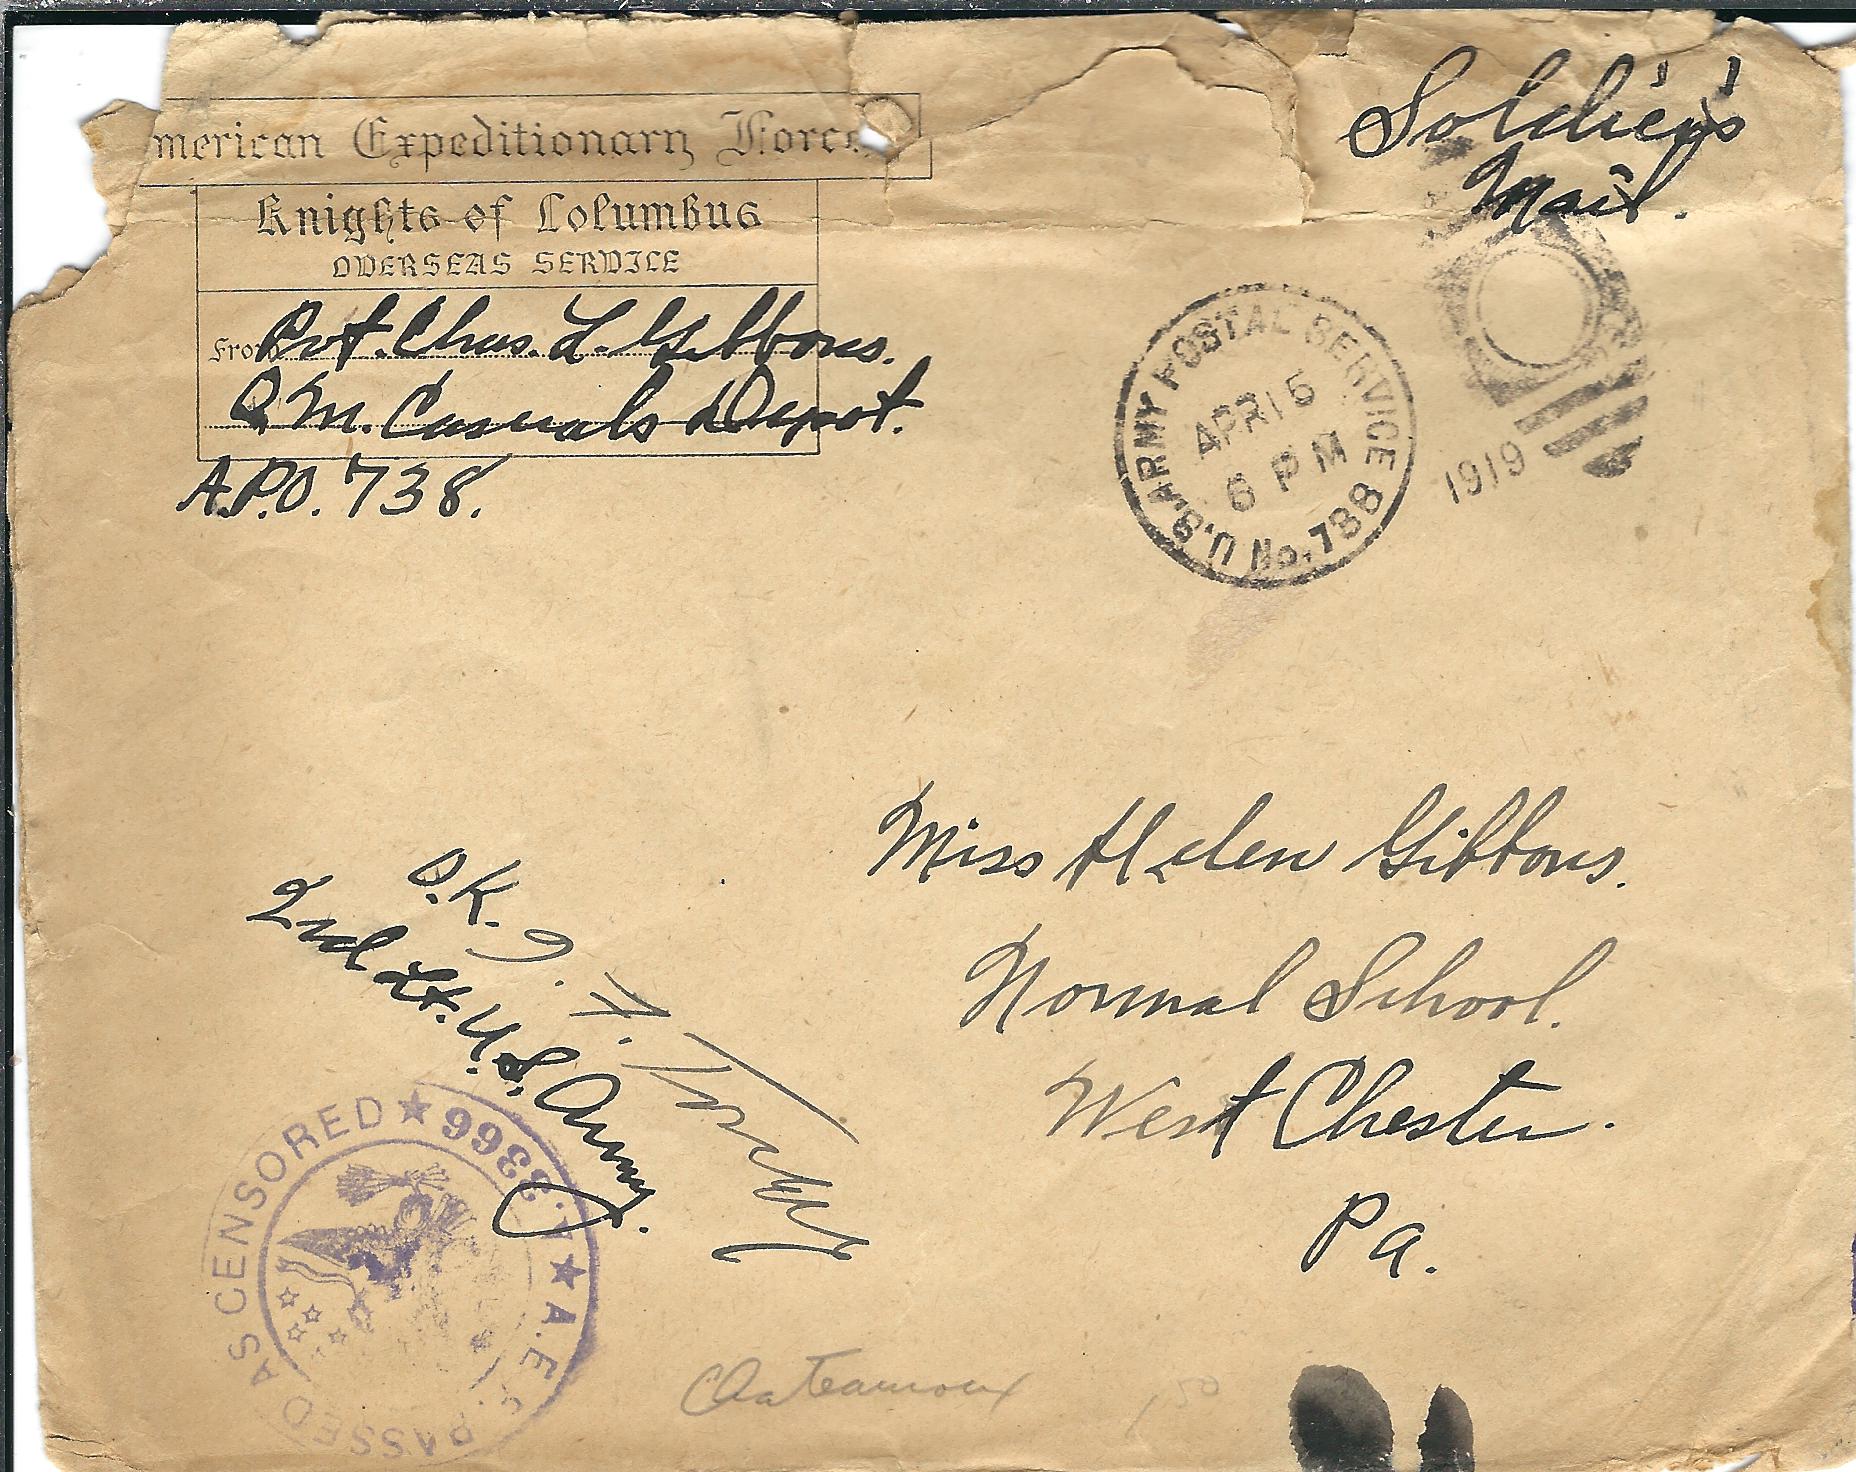 merican Expeditionary Force
Knights of Columbus
OVERSEAS SERVICE
From Pvt. Chas. L. Gibbons.
Q.M. Casuals Depot.
A.P.O. 738.
Soldier's
Mail.
U.S. ARMY POSTAL SERVICE
APR 15
6 PM
No. 738
1919
Miss Helen Gibbons.
Normal School.
West Chester.
Pa.
O.K.
2nd Lt. U.S. Army.
PASSED AS CENSORED ★ 3366 ★ A.E.F.
Chateauroux